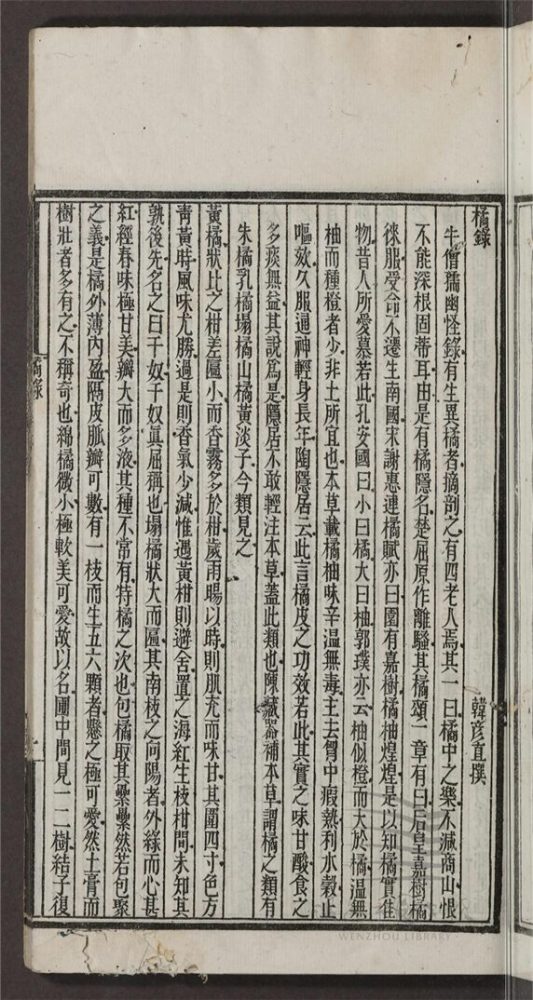 橘錄
韓彥直撰
牛僧孺幽怪錄有生異橘者摘剖之有四老人焉其一曰橘中之樂不減商山恨
不能深根固蒂耳由是有橘隱名楚屈原作離騷其橘頌一章有曰后皇嘉樹橘
徠服受命不遷生南國宋謝惠連橘賦亦曰園有嘉樹橘柚煌煌是以知橘實佳
物昔人所愛慕若此孔安國曰小曰橘大曰柚郭璞亦云柚似橙而大於橘溫無
柚而種橙者少非土所宜也本草載橘柚味辛溫無毒主去胃中瘕熱利水穀止
嘔欬久服通神輕身長年陶隱居云此言橘皮之功效若此其實之味甘酸食之
多痰無益其說為是隱居不敢輕注本草蓋此類也陳藏器補本草謂橘之類有
朱橘乳橘塌橘山橘黃淡子今類見之
黃橘狀比之柑差匾小而香霧多於柑歲雨暘以時則肌充而味甘其圍四寸色方
青黃時風味尤勝過是則香氣少減惟遇黃柑則避舍置之海紅生枝柑間未知其
孰後先名之曰千奴千奴真屈稱也塌橘狀大而匾其南枝之向陽者外綠而心甚
紅經春味極甘美瓣大而多液其種不常有特橘之次也包橘取其纍纍然若包聚
之義是橘外薄內盈隔皮脈瓣可數有一枝而生五六顆者懸之極可愛然土膏而
樹壯者多有之不稱奇也綿橘微小極軟美可愛故以名圃中間見一二樹結子復
橘錄
一
WENZHOU LIBRARY